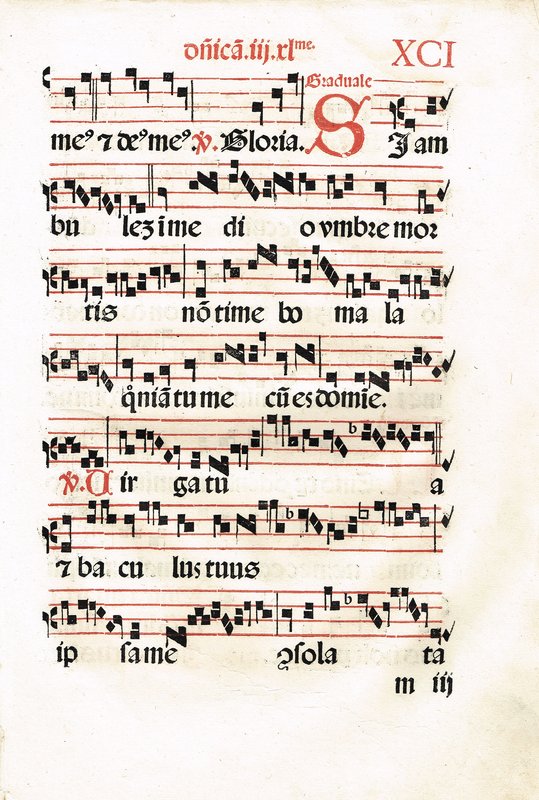 dñicã.iij.xlme.
XCI
Graduale
meꝰ ⁊ deꝰ meꝰ. ℣. Gloria. S I am
bu lez i me di o vmbre mor
tis nõ time bo ma la
qͥniã tu me cũ es domie.
℣. U ir ga tu a
⁊ ba cu lus tuus
ip sa me ꝯsola ta
m iij